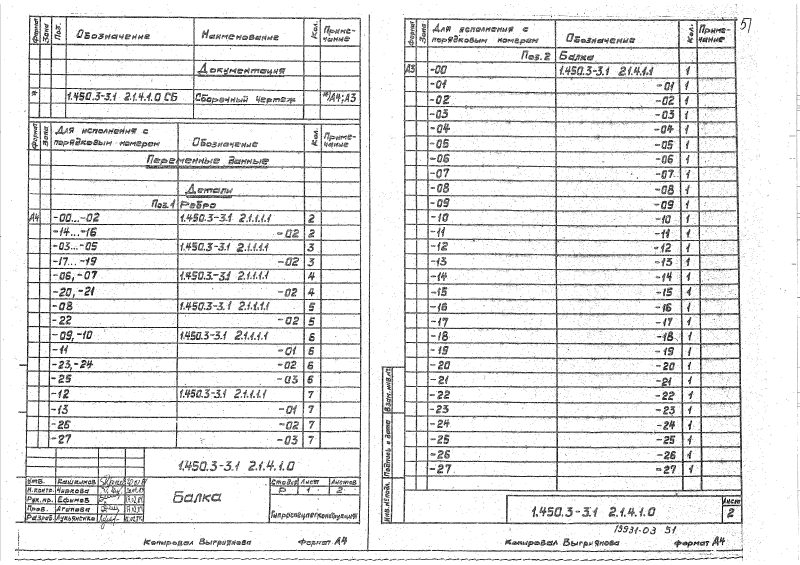 Формат Зона Поз. Обозначение Наименование Кол. Приме-чание
Документация
* 1.450.3-3.1 2.1.4.1.0 СБ Сборочный чертеж *)А4;А3
Формат Зона Для исполнения с порядковым номером Обозначение Кол. Приме-чание
Переменные данные
Детали
Поз.1 Ребро
А4 -00...-02 1.450.3-3.1 2.1.1.1.1 2
-14...-16 -02 2
-03...-05 1.450.3-3.1 2.1.1.1.1 3
-17...-19 -02 3
-06,-07 1.450.3-3.1 2.1.1.1.1 4
-20,-21 -02 4
-08 1.450.3-3.1 2.1.1.1.1 5
-22 -02 5
-09,-10 1.450.3-3.1 2.1.1.1.1 6
-11 -01 6
-23,-24 -02 6
-25 -03 6
-12 1.450.3-3.1 2.1.1.1.1 7
-13 -01 7
-26 -02 7
-27 -03 7
1.450.3-3.1 2.1.4.1.0
Утв. Кашкынов
Н.контр. Чиркова
Рук.пр. Ефимов
Пров. Агапова
Разраб. Лукьяненко
Балка
Стадия Лист Листов
Р 1 2
Гипроспецлегконструкция
Копировал Выгриянова Формат А4
51
Формат Зона Для исполнения с порядковым номером Обозначение Кол. Приме-чание
Поз.2 Балка
А3 -00 1.450.3-3.1 2.1.4.1.1 1
-01 -01 1
-02 -02 1
-03 -03 1
-04 -04 1
-05 -05 1
-06 -06 1
-07 -07 1
-08 -08 1
-09 -09 1
-10 -10 1
-11 -11 1
-12 -12 1
-13 -13 1
-14 -14 1
-15 -15 1
-16 -16 1
-17 -17 1
-18 -18 1
-19 -19 1
-20 -20 1
-21 -21 1
-22 -22 1
-23 -23 1
-24 -24 1
-25 -25 1
-26 -26 1
-27 -27 1
Инв.№подл. Подпись и дата Взам.инв.№
1.450.3-3.1 2.1.4.1.0
Лист
2
15931-03 51
Копировал Выгриянова Формат А4